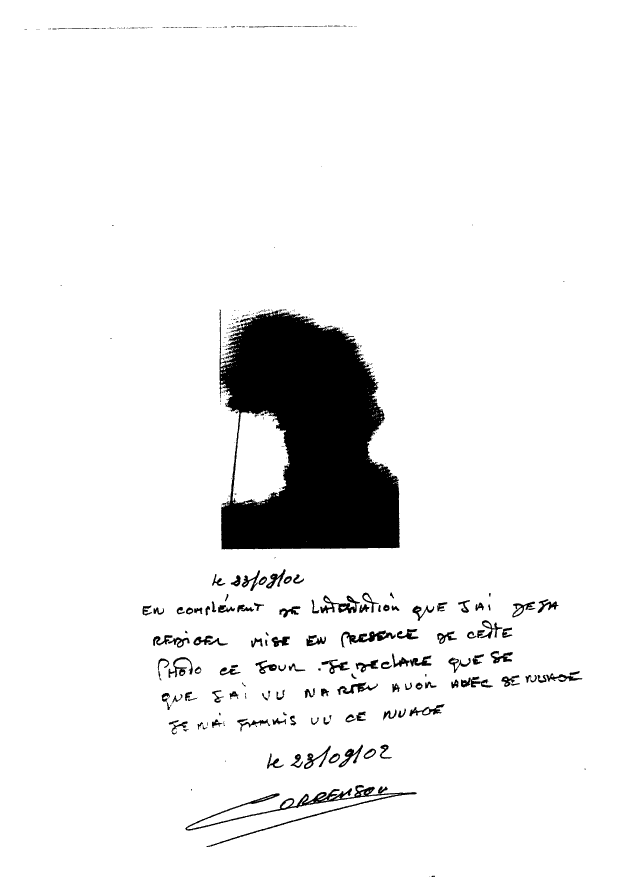 le 23/09/02
EN COMPLÉMENT DE LATESTATION QUE J'AI DEJA
REDIGER MISE EN PRESENCE DE CETTE
PHOTO CE JOUR. JE DECLARE QUE SE
QUE J'AI VU NA RIEN AVOIR AVEC SE NUAGE
JE N'AI JAMAIS VU CE NUAGE
le 23/09/02
CORRENSON